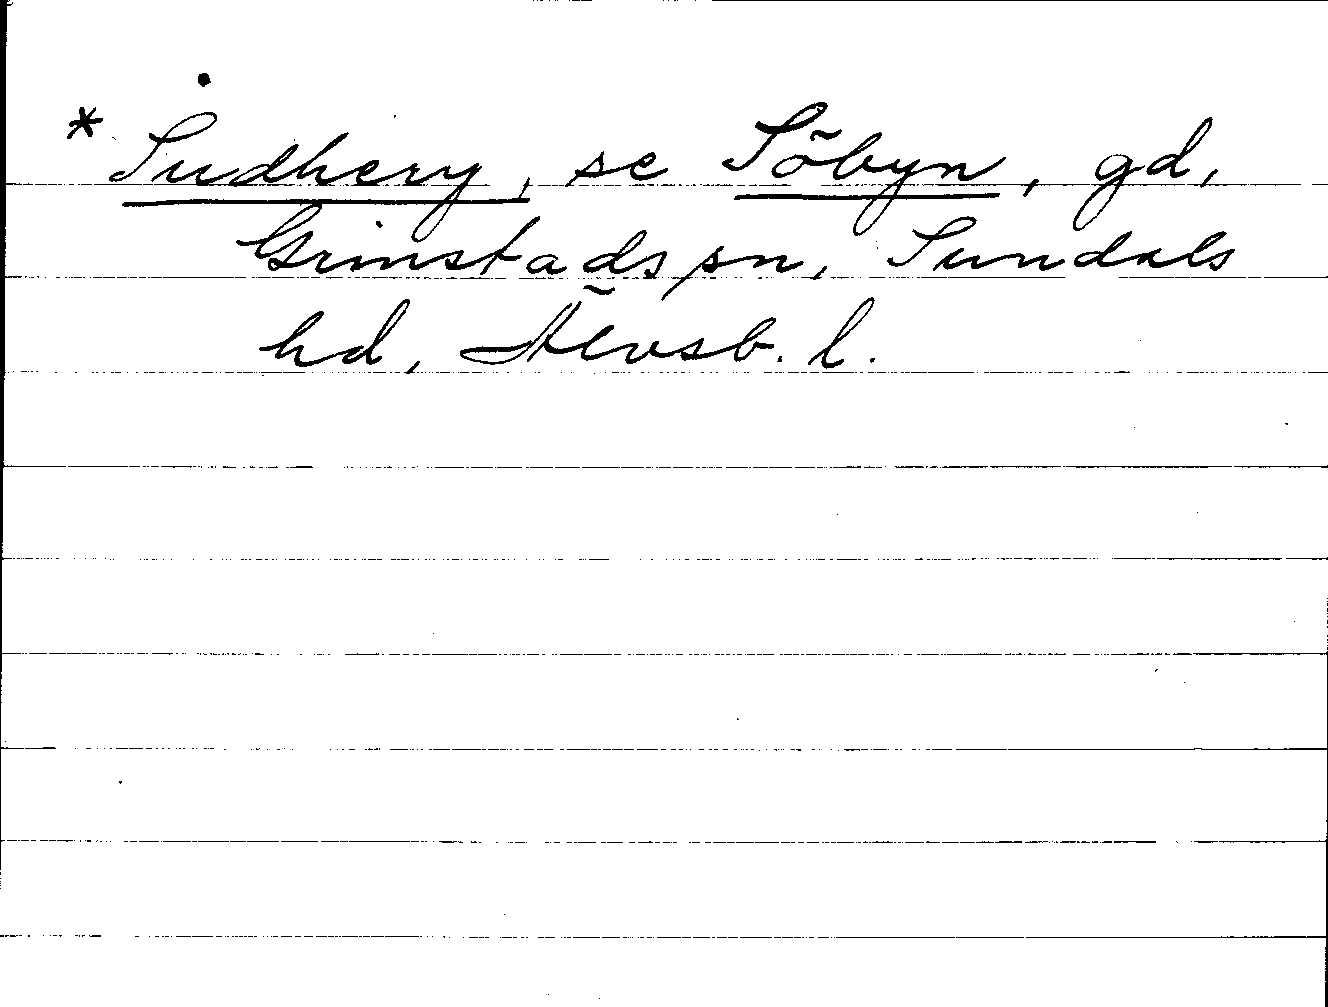 * Sudhery, se Söbyn, gd,
Grinstads sn, Sundals
hd, Älvsb. l.